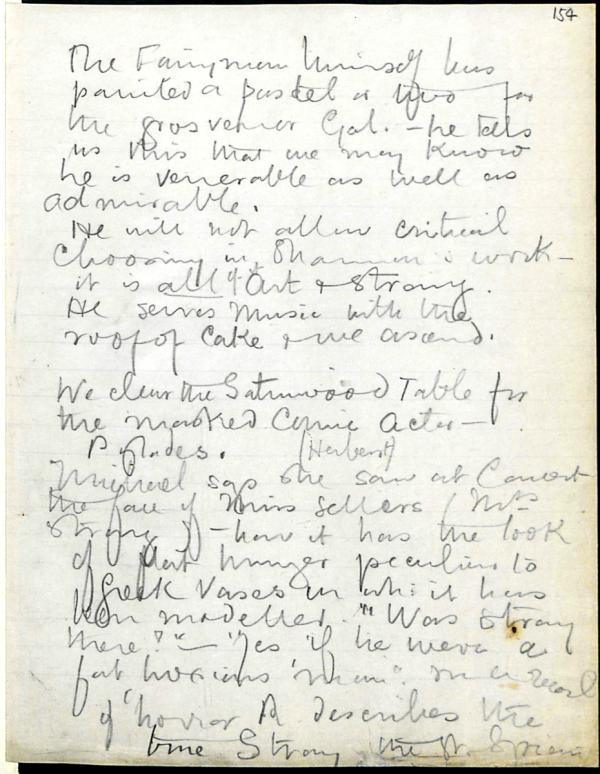 154
The Fairyman himself has
painted a pastel or two for
the grosvenor Gal. – he tells
us this that we may know
he is venerable as well as
admirable.
He will not allow critical
choosing in Shannon's work –
it is all "Art & Strong".
He serves music with the
roof of Cake & we ascend.
We clear the Satinwood Table for
the masked Comic Actor –
Pylades. (Herbert)
Michael says she saw at Concert
the face of Miss Sellers (Mrs
Strong) – how it has the look
of that hunger peculiar to
Greek Vases in whi: it has
been modelled. "Was Strong
there?" – "Yes if he were a
fat 'man". in a
of horror P. describes the
true Strong the